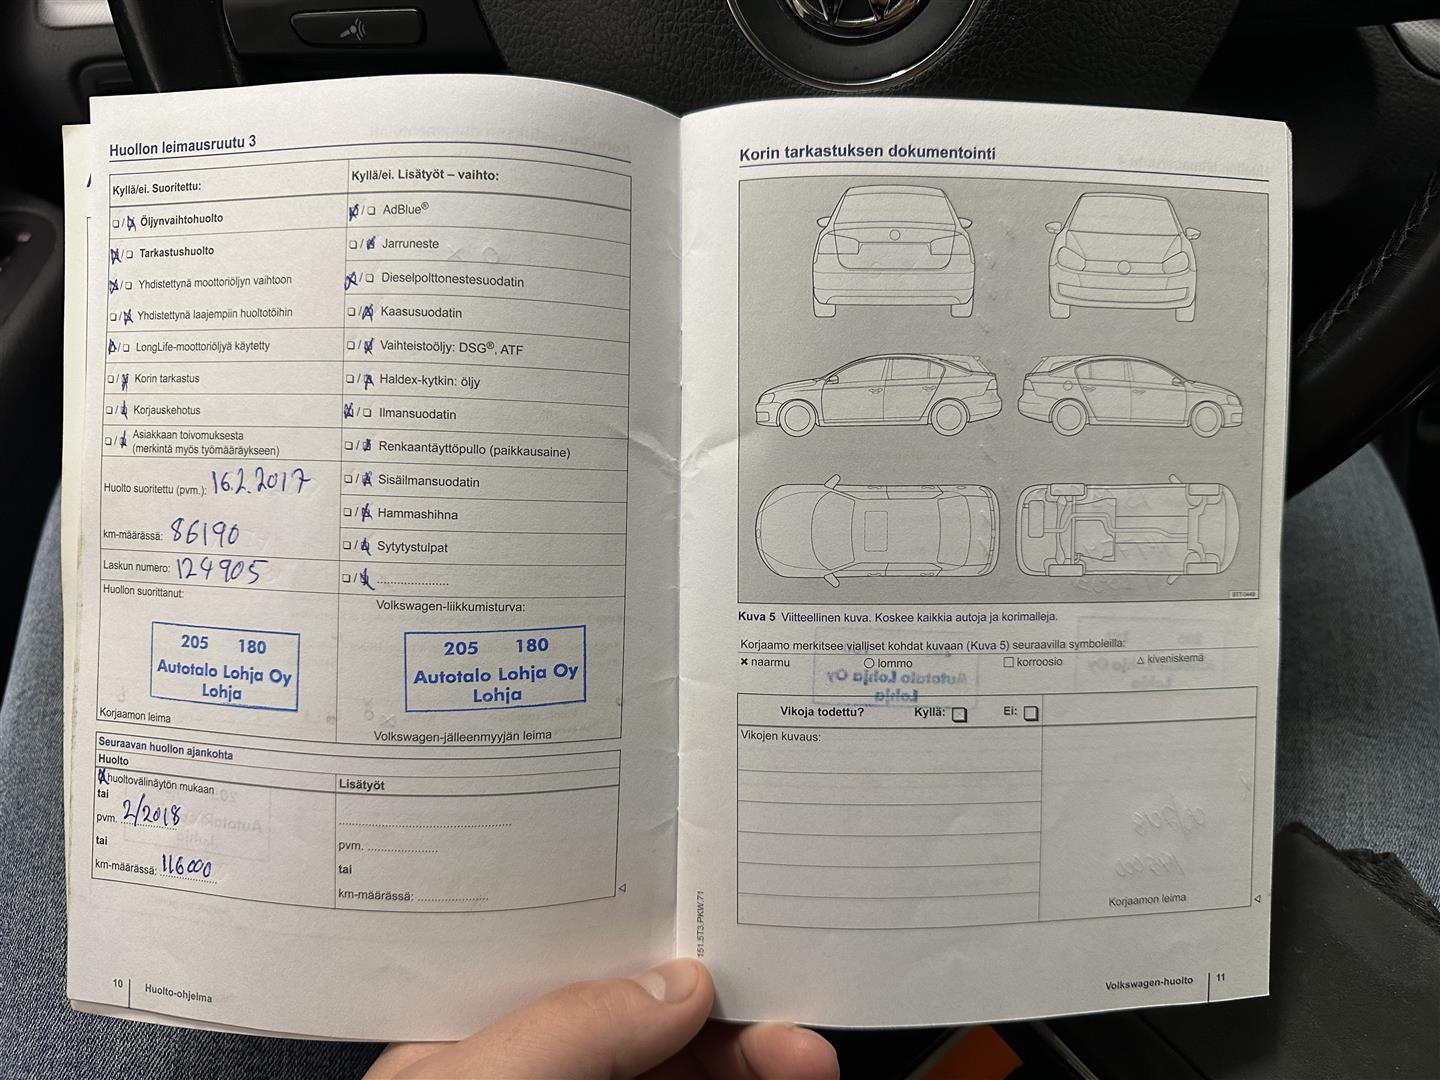 Huollon leimausruutu 3
Kyllä/ei. Suoritettu:
Öljynvaihtohuolto
Tarkastushuolto
Yhdistettynä moottoriöljyn vaihtoon
Yhdistettynä laajempiin huoltotöihin
LongLife-moottoriöljyä käytetty
Korin tarkastus
Korjauskehotus
Asiakkaan toivomuksesta
(merkintä myös työmääräykseen)
Huolto suoritettu (pvm.): 16.2.2017
km-määrässä: 86190
Laskun numero: 124905
Huollon suorittanut:
205 180
Autotalo Lohja Oy
Lohja
Korjaamon leima
Kyllä/ei. Lisätyöt – vaihto:
AdBlue®
Jarruneste
Dieselpolttonestesuodatin
Kaasusuodatin
Vaihteistoöljy: DSG®, ATF
Haldex-kytkin: öljy
Ilmansuodatin
Renkaantäyttöpullo (paikkausaine)
Sisäilmansuodatin
Hammashihna
Sytytystulpat
Volkswagen-liikkumisturva:
205 180
Autotalo Lohja Oy
Lohja
Volkswagen-jälleenmyyjän leima
Seuraavan huollon ajankohta
Huolto
huoltovälinäytön mukaan
tai
pvm. 2/2018
tai
km-määrässä: 116000
Lisätyöt
pvm.
tai
km-määrässä:
10 Huolto-ohjelma
Korin tarkastuksen dokumentointi
BTT-0449
Kuva 5 Viitteellinen kuva. Koskee kaikkia autoja ja korimalleja.
Korjaamo merkitsee vialliset kohdat kuvaan (Kuva 5) seuraavilla symboleilla:
× naarmu ○ lommo □ korroosio △ kiveniskemä
Vikoja todettu? Kyllä: □ Ei: □
Vikojen kuvaus:
Korjaamon leima
151.5T3.PKW.71
Volkswagen-huolto 11